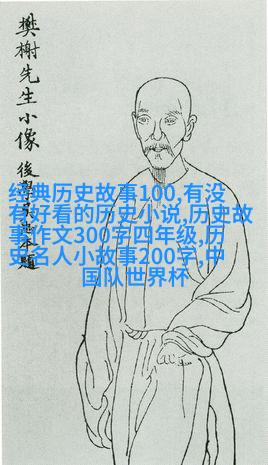 樊榭先生小像
後學
題
经典历史故事100,有没
有好看的历史小说,历史故
事作文300字四年级,历
史名人小故事200字,中
国队世界杯